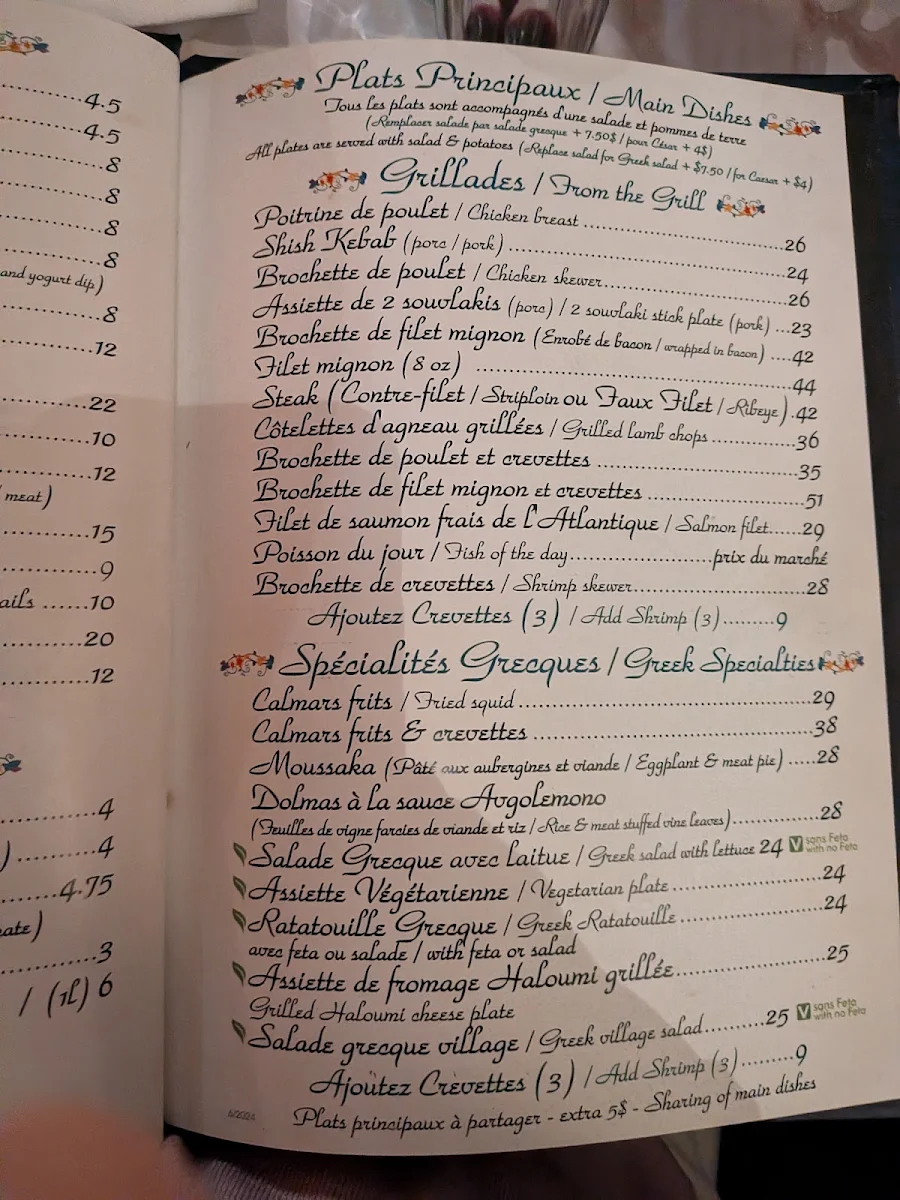 4.5
4.5
8
8
8
8
and yogurt dip)
8
12
22
10
12
meat)
15
9
ails ......10
20
12
4
) ..........4
4.75
ate)
3
/ (1l) 6
Plats Principaux / Main Dishes
Tous les plats sont accompagnés d'une salade et pommes de terre
(Remplacer salade par salade grecque + 7.50$ / pour César + 4$)
All plates are served with salad & potatoes (Replace salad for Greek salad + $7.50 / for Caesar + $4)
Grillades / From the Grill
Poitrine de poulet / Chicken breast ..........26
Shish Kebab (porc / pork) ..........24
Brochette de poulet / Chicken skewer..........26
Assiette de 2 souvlakis (porc) / 2 souvlaki stick plate (pork) ...23
Brochette de filet mignon (Enrobé de bacon / wrapped in bacon) ....42
Filet mignon (8 oz) ..........44
Steak (Contre-filet / Striploin ou Faux Filet / Ribeye) .42
Côtelettes d'agneau grillées / Grilled lamb chops ..........36
Brochette de poulet et crevettes ..........35
Brochette de filet mignon et crevettes ..........51
Filet de saumon frais de l'Atlantique / Salmon filet......29
Poisson du jour / Fish of the day..........prix du marché
Brochette de crevettes / Shrimp skewer..........28
Ajoutez Crevettes (3) / Add Shrimp (3).........9
Spécialités Grecques / Greek Specialties
Calmars frits / Fried squid ..........29
Calmars frits & crevettes ..........38
Moussaka (Pâté aux aubergines et viande / Eggplant & meat pie) .....28
Dolmas à la sauce Avgolemono
(Feuilles de vigne farcies de viande et riz / Rice & meat stuffed vine leaves)..........28
Salade Grecque avec laitue / Greek salad with lettuce 24 V sans Feta with no Feta
Assiette Végétarienne / Vegetarian plate ..........24
Ratatouille Grecque / Greek Ratatouille ..........24
avec feta ou salade / with feta or salad
Assiette de fromage Haloumi grillée..........25
Grilled Haloumi cheese plate
Salade grecque village / Greek village salad..........25 V sans Feta with no Feta
Ajoutez Crevettes (3) / Add Shrimp (3).........9
Plats principaux à partager - extra 5$ - Sharing of main dishes